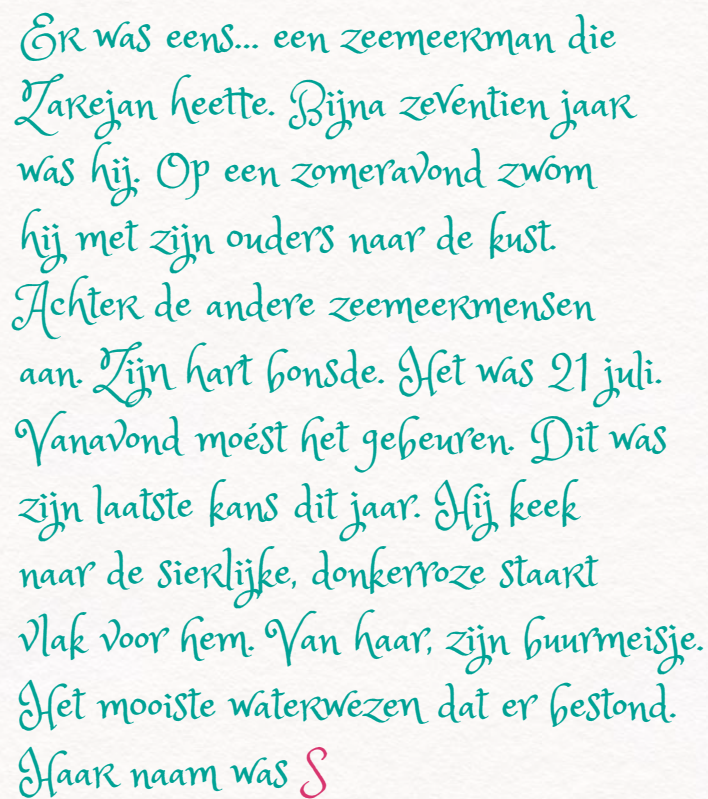 Er was eens... een zeemeerman die
Zarejan heette. Bijna zeventien jaar
was hij. Op een zomeravond zwom
hij met zijn ouders naar de kust.
Achter de andere zeemeermensen
aan. Zijn hart bonsde. Het was 21 juli.
Vanavond moést het gebeuren. Dit was
zijn laatste kans dit jaar. Hij keek
naar de sierlijke, donkerroze staart
vlak voor hem. Van haar, zijn buurmeisje.
Het mooiste waterwezen dat er bestond.
Haar naam was S